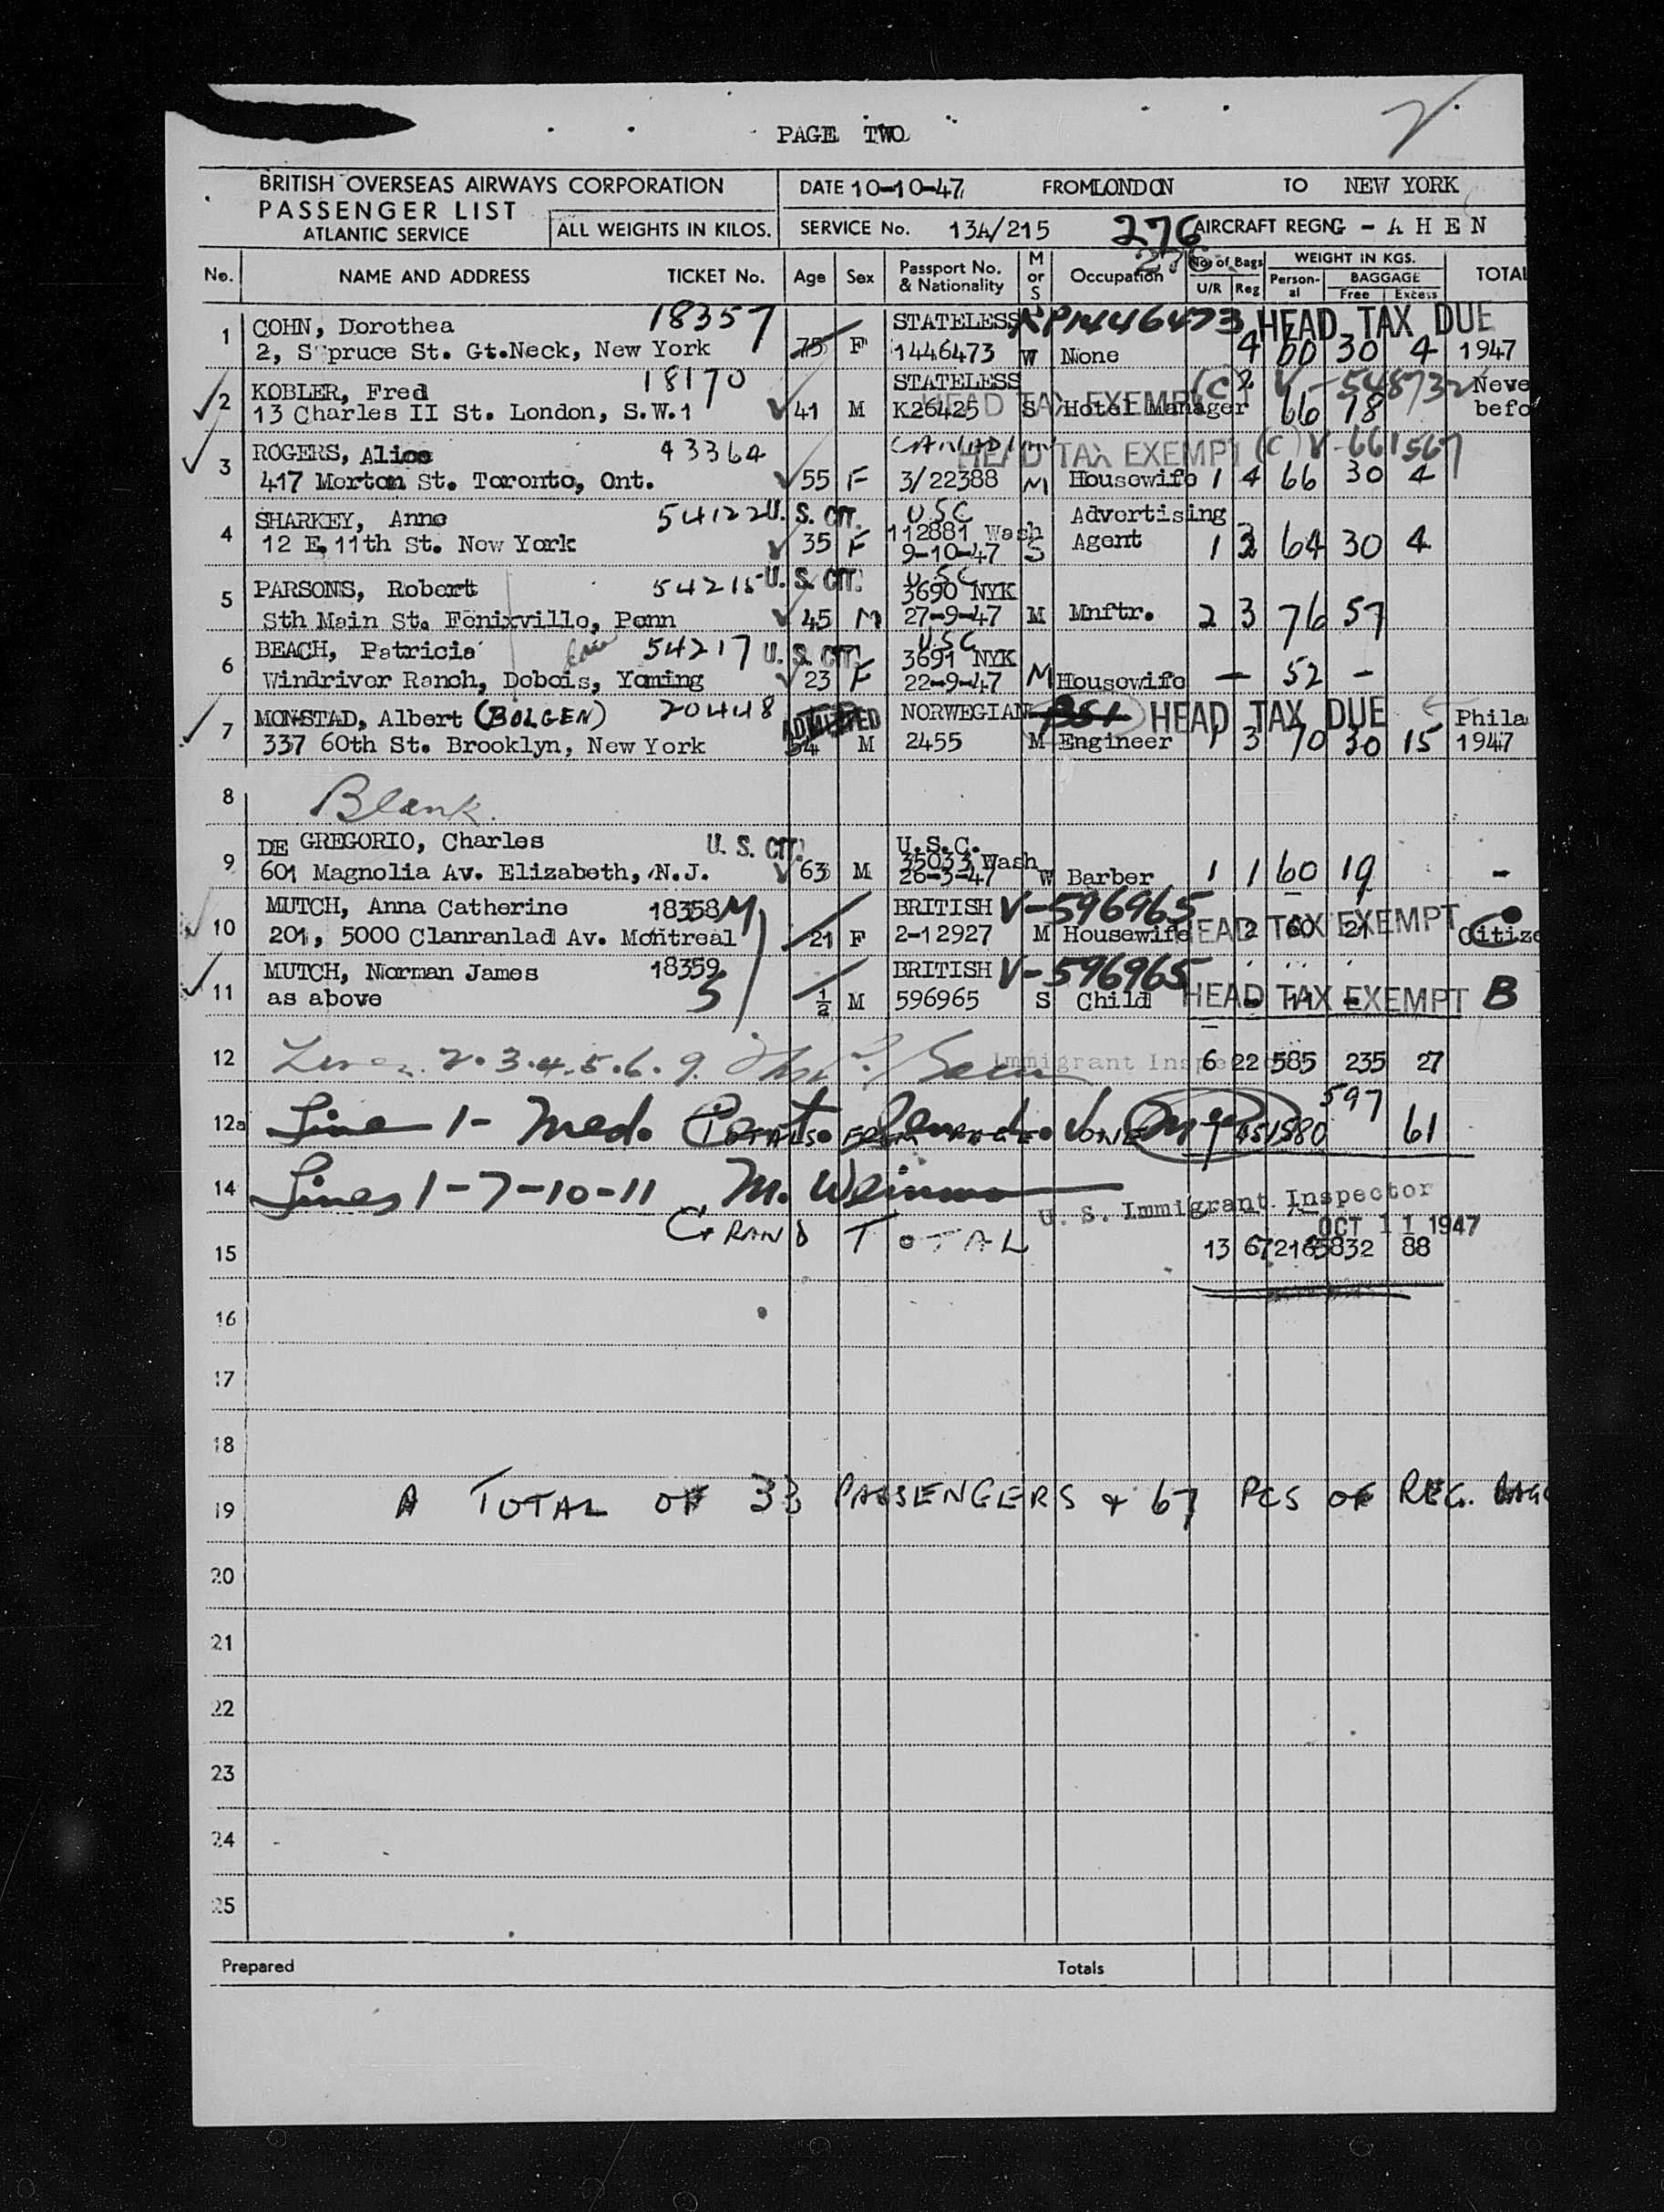 PAGE TWO
BRITISH OVERSEAS AIRWAYS CORPORATION
PASSENGER LIST
ATLANTIC SERVICE
ALL WEIGHTS IN KILOS.
DATE 10-10-47 FROM LONDON TO NEW YORK
SERVICE No. 134/215 276 AIRCRAFT REGN G - A H E N
No. NAME AND ADDRESS TICKET No. Age Sex Passport No. & Nationality M or S Occupation No. of Bags U/R Reg WEIGHT IN KGS. Personal BAGGAGE Free Excess TOTAL
1 COHN, Dorothea 18357 STATELESS HEAD TAX DUE
2, Spruce St. Gt.Neck, New York 75 F 1446473 W None 4 60 30 4 1947
2 KOBLER, Fred 18170 STATELESS HEAD TAX EXEMPT (C) 2 V-548732 Neve
13 Charles II St. London, S.W.1 41 M K26425 S Hotel Manager 66 18 befo
3 ROGERS, Alice 43364 CANADIAN HEAD TAX EXEMPT (C) V-661567
417 Morton St. Toronto, Ont. 55 F 3/22388 M Housewife 1 4 66 30 4
4 SHARKEY, Anne 54122 U. S. CIT. USC Advertising
12 E. 11th St. New York 35 F 112881 Wash 9-10-47 S Agent 1 3 64 30 4
5 PARSONS, Robert 54215 U. S. CIT. USC 3690 NYK
Sth Main St. Fenixville, Penn 45 M 27-9-47 M Mnftr. 2 3 76 57
6 BEACH, Patricia 54217 U. S. CIT. USC 3691 NYK
Windriver Ranch, Dobois, Yoming 23 F 22-9-47 M Housewife — 52 -
7 MONSTAD, Albert (BOLGEN) 20448 ADMITTED NORWEGIAN HEAD TAX DUE Phila
337 60th St. Brooklyn, New York 54 M 2455 M Engineer 1 3 70 30 15 1947
8 Blank.
9 DE GREGORIO, Charles U. S. CIT. U.S.C.
601 Magnolia Av. Elizabeth, N.J. 63 M 35033 Wash 26-3-47 W Barber 1 1 60 19 -
10 MUTCH, Anna Catherine 18358 M BRITISH V-596965 HEAD TAX EXEMPT
201, 5000 Clanranlad Av. Montreal 21 F 2-12927 M Housewife 2 60 21 Citize
11 MUTCH, Norman James 18359 BRITISH V-596965
as above 5 ½ M 596965 S Child HEAD TAX EXEMPT B
12 Lines 2.3.4.5.6.9. Immigrant Inspector 6 22 585 235 27
12a Line 1- Med. TOTALS FROM PAGE ONE 597 61
14 Lines 1-7-10-11 M.
U. S. Immigrant Inspector
OCT 11 1947
15 GRAND TOTAL 13 67 2165 832 88
16
17
18
19 A TOTAL OF 33 PASSENGERS & 67 PCS OF REG. BAGG
20
21
22
23
24
25
Prepared Totals